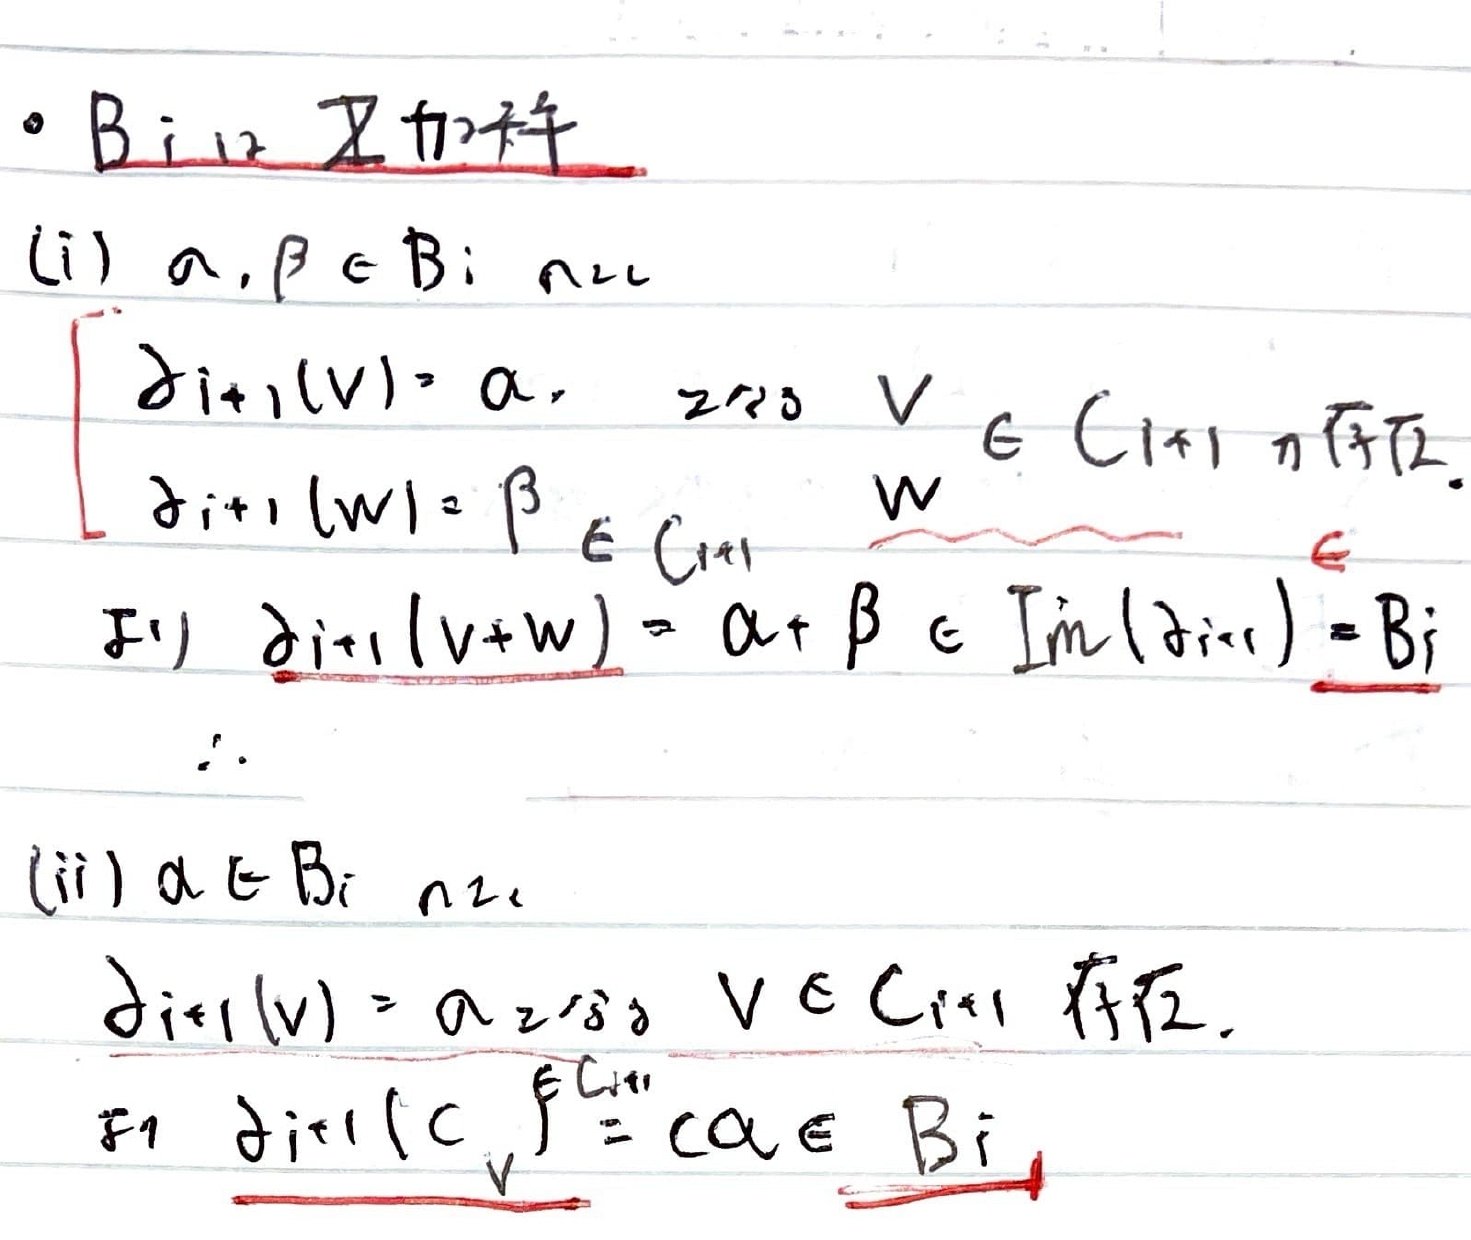 ・Bi は Z加群
(i) α, β ∈ Bi のとき
∂i+1(v) = α, となる v
∂i+1(w) = β w ∈ Ci+1 が存在.
∈ Ci+1 ∈
より ∂i+1(v+w) = α+β ∈ Im(∂i+1) = Bi
∴
(ii) α ∈ Bi のとき
∂i+1(v) = α となる v ∈ Ci+1 存在.
∈ Ci+1
より ∂i+1(cv) = cα ∈ Bi